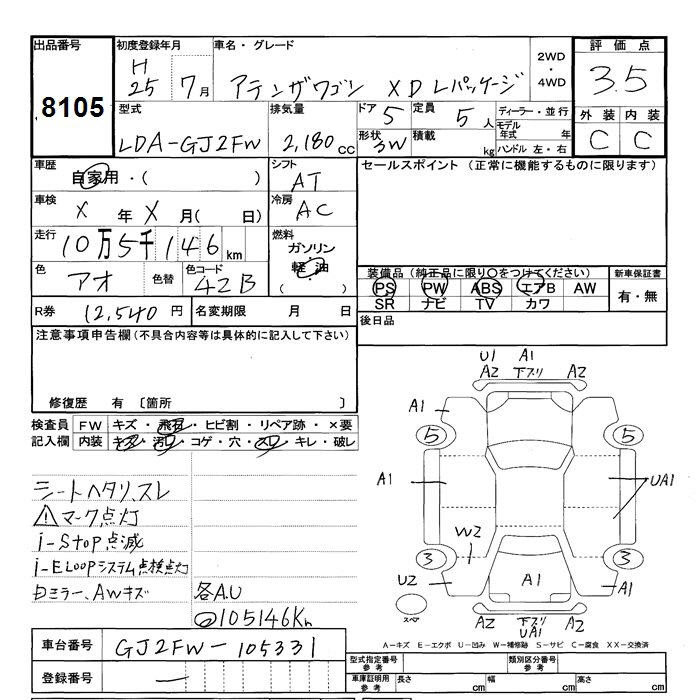 出品番号 初度登録年月 車名・グレード 2WD・4WD 評価点
8105 H25年 7月 アテンザワゴン XD Lパッケージ 3.5
型式 排気量 ドア 5 定員 5人 ディーラー・並行 外装 内装
LDA-GJ2FW 2,180cc 形状 3W 積載 kg モデル年式 年 C C
ハンドル 左・右
車歴 自家用・( ) シフト AT セールスポイント (正常に機能するものに限ります)
車検 X年 X月( 日) 冷房 AC
走行 10万5千146km 燃料 ガソリン・軽油・( )
色 アオ 色替 色コード 42B
装備品(純正品に限り○をつけてください) 新車保証書
PS PW ABS エアB AW 有・無
SR ナビ TV カワ
R券 12,540円 名変期限 月 日 後日品
注意事項申告欄(不具合内容等は具体的に記入して下さい)
修復歴 有 〔箇所 〕
検査員 FW キズ・飛石・ヒビ割・リペア跡・×要
記入欄 内装 キズ・汚れ・コゲ・穴・スレ・キレ・破レ
シートヘタリ、スレ
⚠マーク点灯
i-Stop点滅
i-ELOOPシステム点検点灯
ドミラー、AWキズ 各A.U
105146Km
U1 A1
A2 下スリ A2
A1
5 5
A1 UA1
W2
3 3
U2 A1 A1
スペア
A2 下スリ A2
UA1
A-キズ E-エクボ U-凹み W-補修跡 S-サビ C-腐食 XX-交換済
車台番号 GJ2FW-105331
登録番号 —
型式指定番号 参考 類別区分番号 参考
車庫証明用 参考 長さ cm 幅 cm 高さ cm